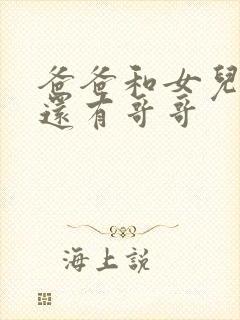 爸爸和女兒
還有哥哥
海上説